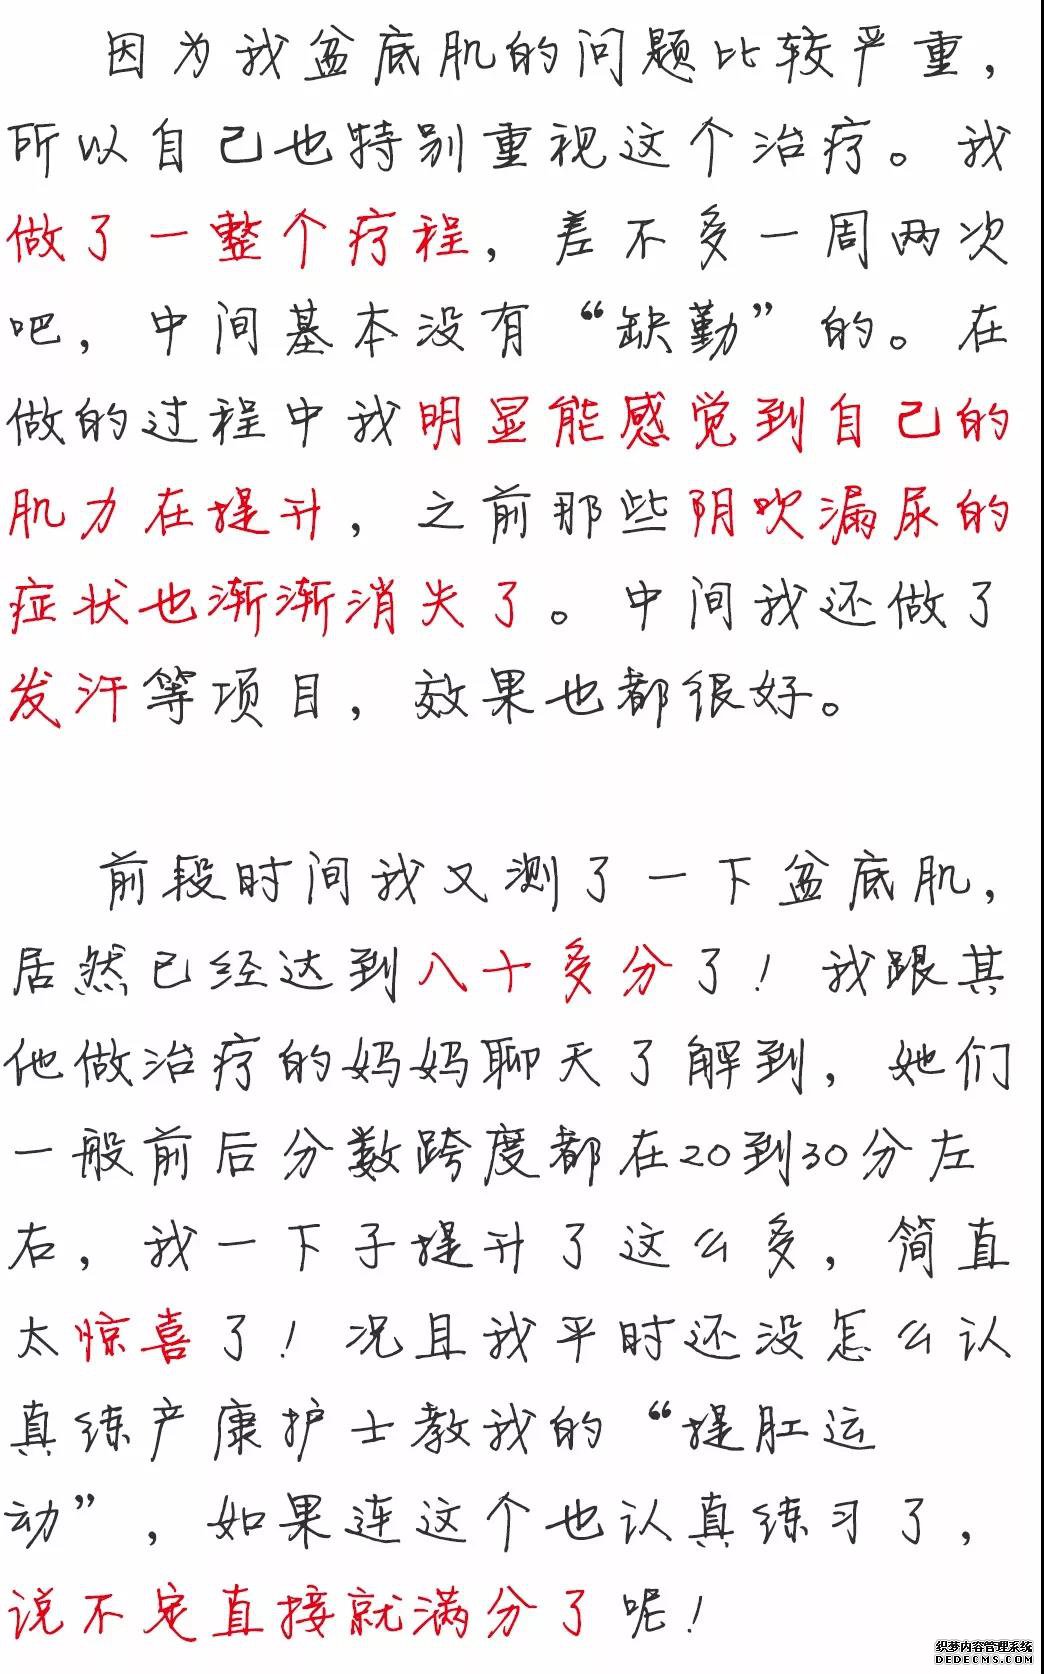 因为我盆底肌的问题比较严重，
所以自己也特别重视这个治疗。我
做了一整个疗程，差不多一周两次
吧，中间基本没有“缺勤”的。在
做的过程中我明显能感觉到自己的
肌力在提升，之前那些阴吹漏尿的
症状也渐渐消失了。中间我还做了
发汗等项目，效果也都很好。
前段时间我又测了一下盆底肌，
居然已经达到八十多分了！我跟其
他做治疗的妈妈聊天了解到，她们
一般前后分数跨度都在20到30分左
右，我一下子提升了这么多，简直
太惊喜了！况且我平时还没怎么认
真练产康护士教我的“提肛运
动”，如果连这个也认真练习了，
说不定直接就满分了呢！
织梦内容管理系统
DEDECMS.COM